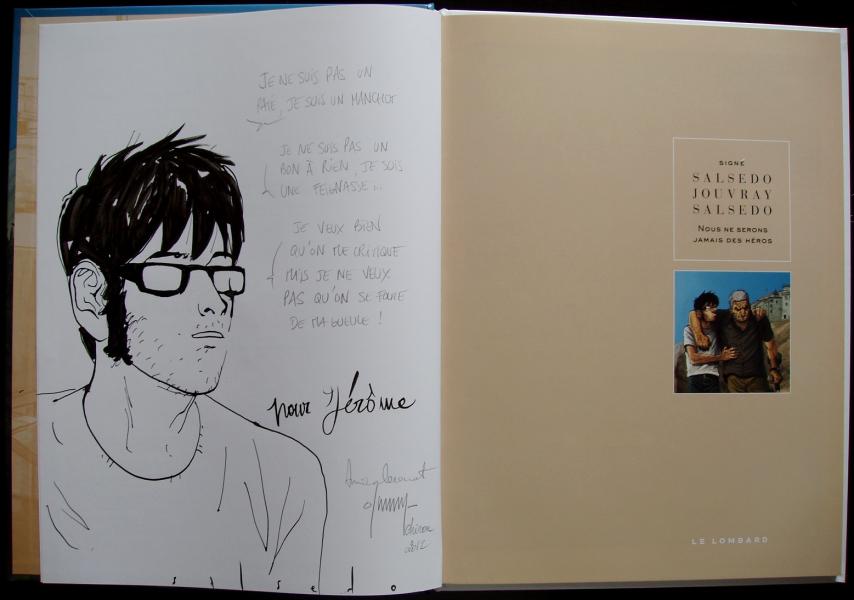 JE NE SUIS PAS UN
RATÉ, JE SUIS UN MANCHOT
JE NE SUIS PAS UN
BON À RIEN, JE SUIS
UNE FEIGNASSE...
JE VEUX BIEN
QU'ON ME CRITIQUE
MAIS JE NE VEUX
PAS QU'ON SE FOUTE
DE MA GUEULE !
pour Jérôme
Amicalement
salsedo
SIGNÉ
SALSEDO
JOUVRAY
SALSEDO
NOUS NE SERONS
JAMAIS DES HÉROS
LE LOMBARD